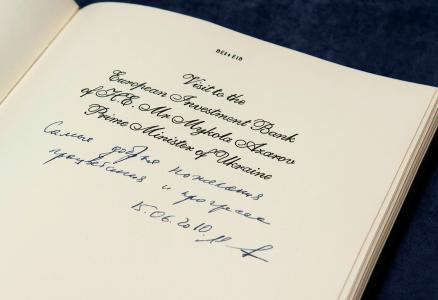 BEI • EIB
Visit to the
European Investment Bank
of H.E. Mr Mykola Azarov
Prime Minister of Ukraine
Самые добрые пожелания
процветания и прогресса
15.06.2010